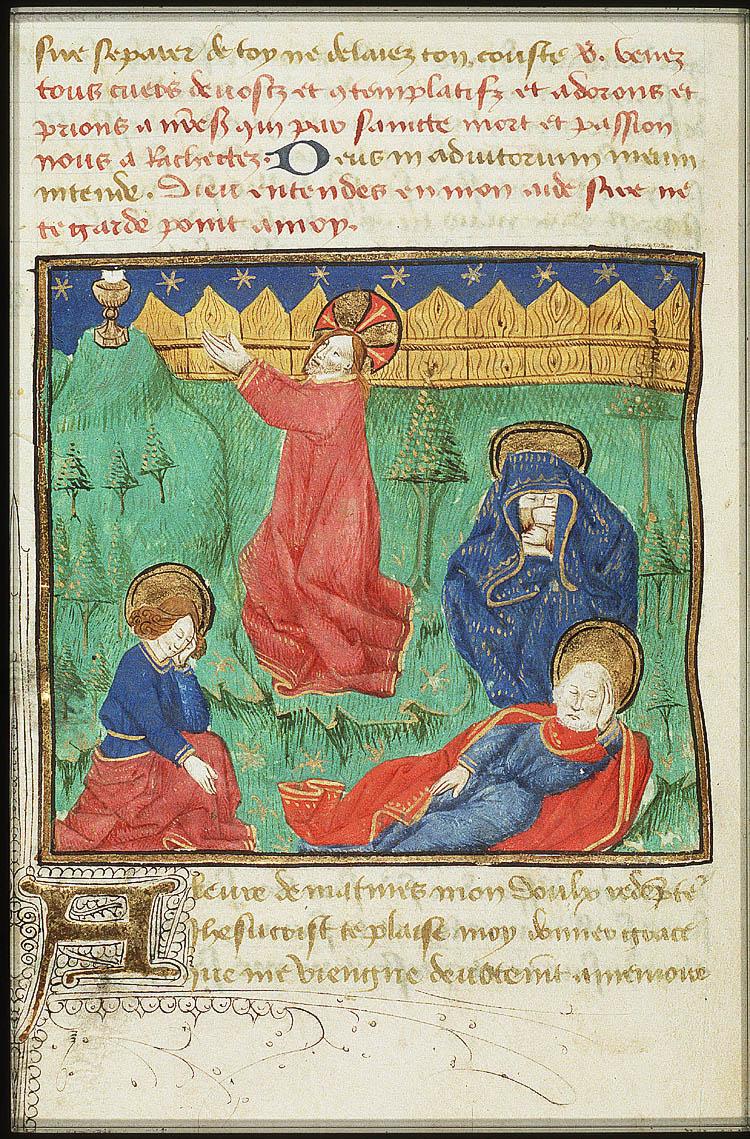 sire separer de toy ne delaiez ton, couste v̄. venez
tous cuers deuostz et 9templatifz et adorons et
prions a qui par saincte mort et passion
nous a Rachectez. Deus in adiutorium meum
intende. Dieu entendes en mon aide sire ne
te garde point a moy.
A leure de matines mon doulx
Ihesucrist te plaise moy donner grace
que me viengne deuotemt a memoire